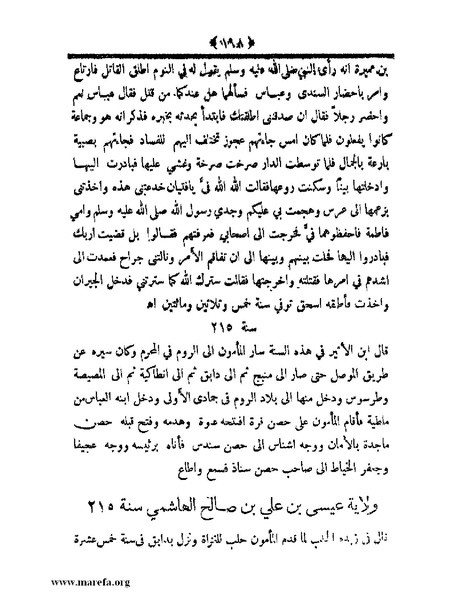 ﴿ ١٩٨ ﴾
بن مميرة انه رأى النبي صلى الله عليه وسلم يقول له في النوم اطلق القاتل فارتاع
وامر باحضار السندى وعباس فسألهما هل عندكما من قتل فقال عباس نعم
واحضر رجلاً فقال ان صدقتنى اطلقتك فابتدأ يحدثه بخبره فذكر انه هو وجماعة
كانوا يفعلون فلما كان امس جاءتهم عجوز تختلف اليهم للفساد فجاءتهم بصبية
بارعة بالجمال فلما توسطت الدار صرخت صرخة وغشي عليها فبادرت اليها
وادخلتها بيتاً وسكنت روعها فقالت الله الله فيَّ يافتيان خدعتنى هذه واخذتنى
بزعمها الى عرس وهجمت بي عليكم وجدي رسول الله صلى الله عليه وسلم وامي
فاطمة فاحفظوهما فيَّ فخرجت الى اصحابي فعرفتهم فقالوا بل قضيت اربك
فبادروا اليها فحلت بينهم وبينها الى ان تفاقم الامر ونالتنى جراح فعمدت الى
اشدهم في امرها فقتلته واخرجتها فقالت سترك الله كما سترتني فدخل الجيران
واخذت فأطلقه اسحق توفي سنة خمس وثلاثين ومائتين اه
سنة ٢١٥
قال ابن الأثير في هذه السنة سار المأمون الى الروم في المحرم وكان سيره عن
طريق الموصل حتى صار الى منبج ثم الى دابق ثم الى انطاكية ثم الى المصيصة
وطرسوس ودخل منها الى بلاد الروم في جمادى الأولى ودخل ابنه العباس من
ملطية فأقام المأمون على حصن قرة افتتحه عنوة وهدمه وفتح قبله حصن
ماجدة بالأمان ووجه اشناس الى حصن سندس فأتاه برئيسه ووجه عجيفا
وجعفر الخياط الى صاحب حصن سناذ فسمع واطاع
ولاية عيسى بن علي بن صالح الهاشمي سنة ٢١٥
قال في زبدة الحلب لما قدم المأمون حلب للغزاة ونزل بدابق في سنة خمس عشرة
www.marefa.org